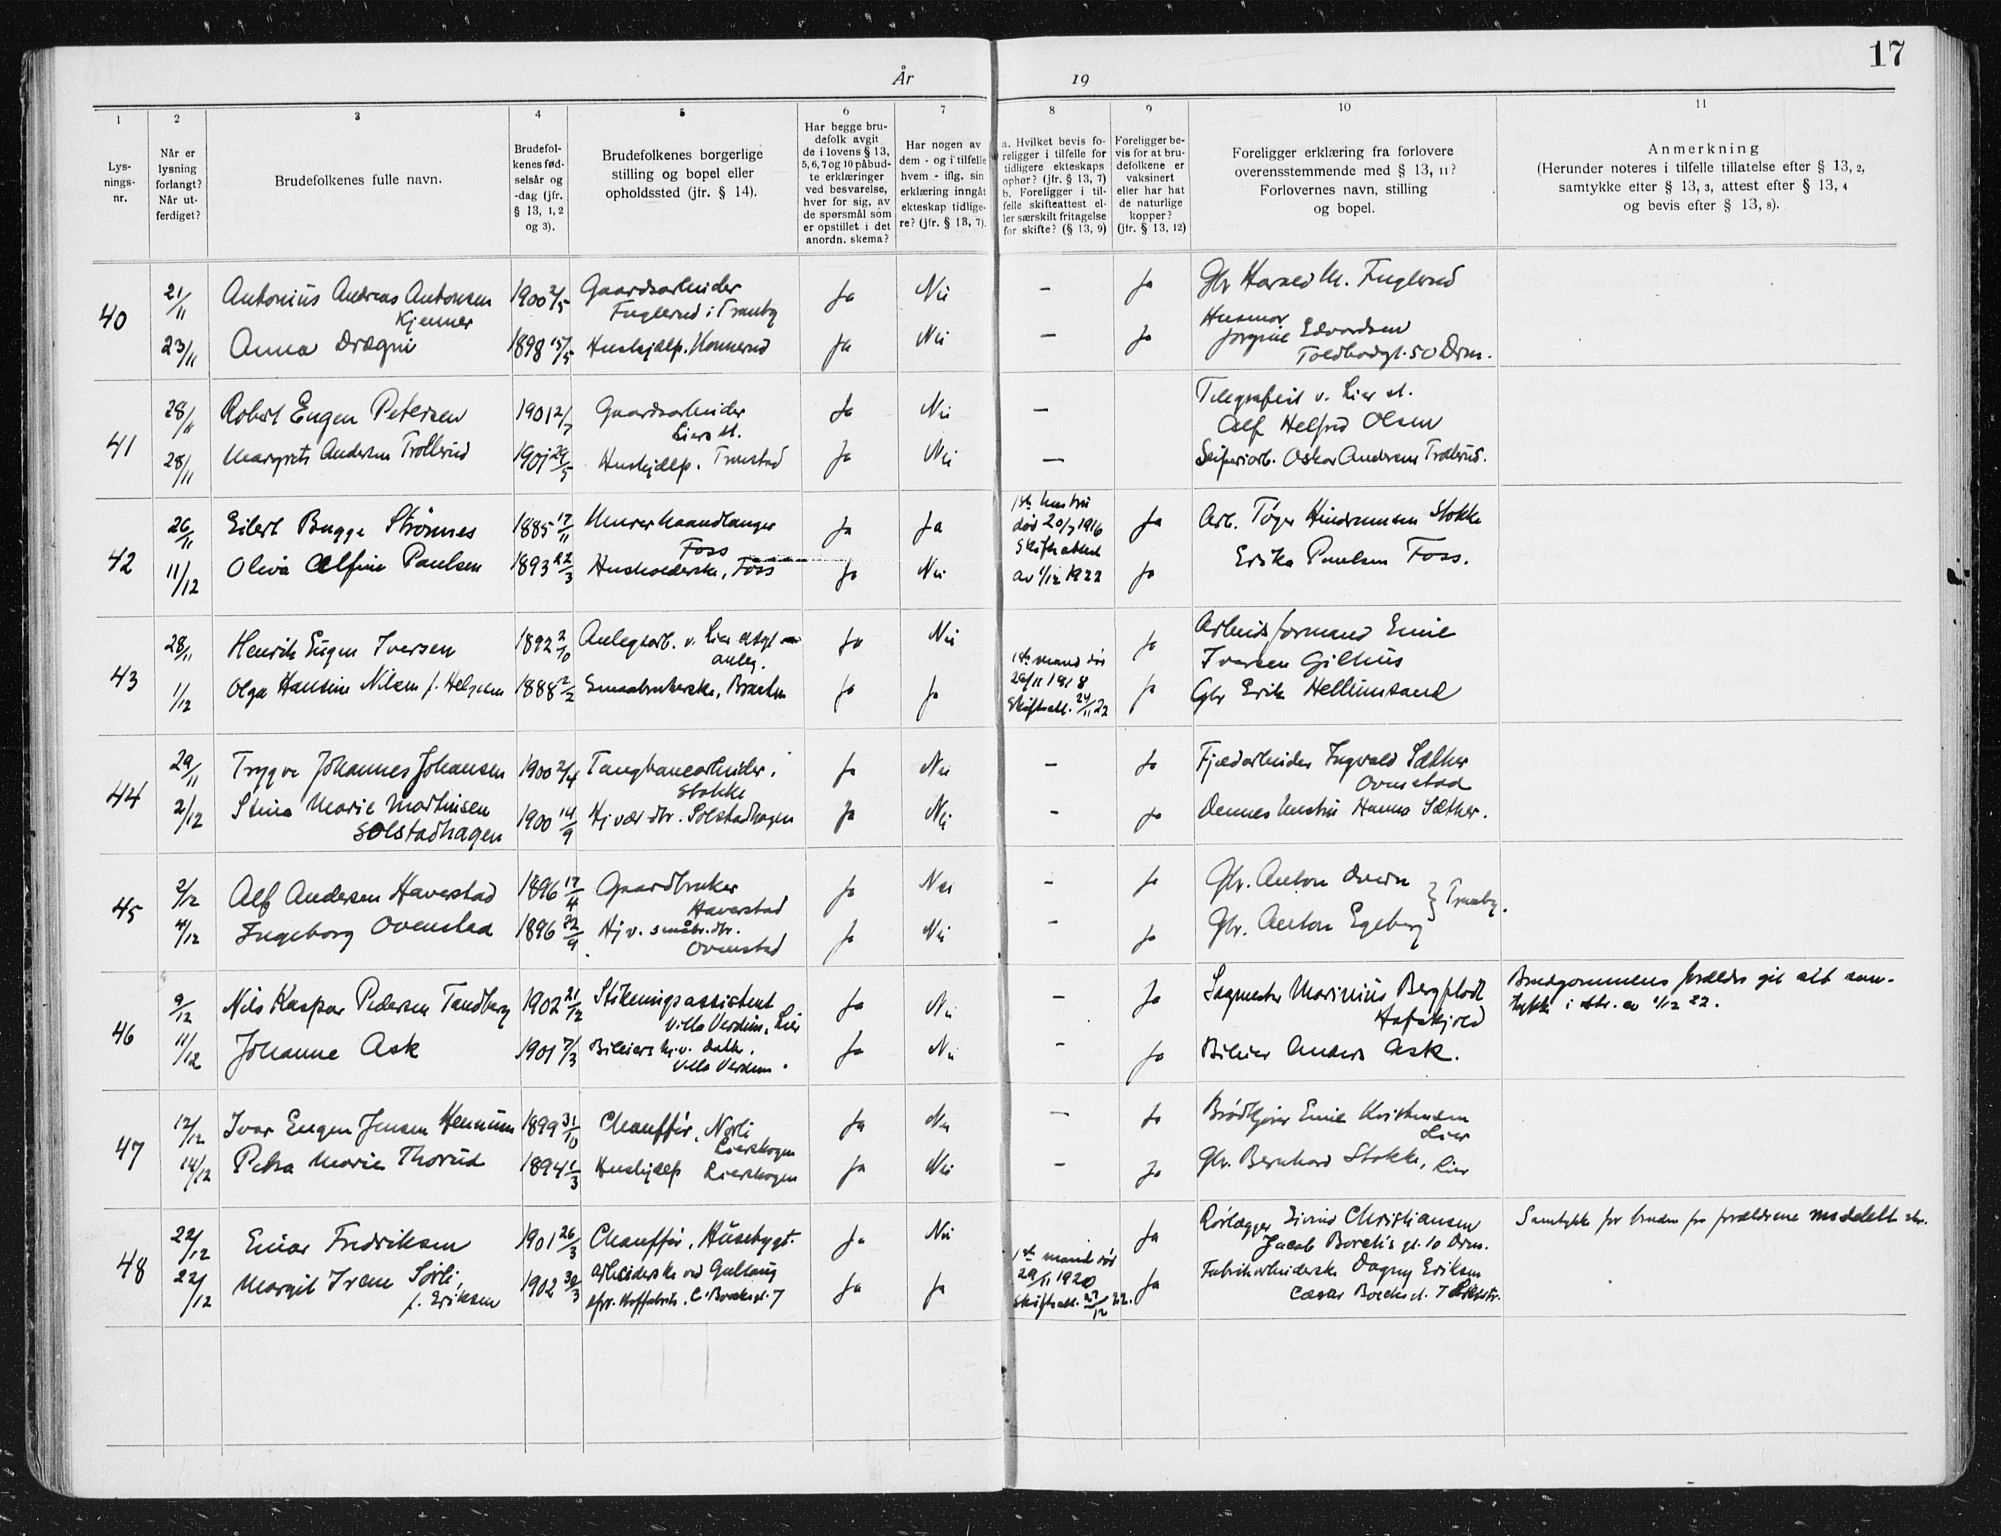 17
År 19
1 2 3 4 5 6 7 8 9 10 11
Lys-
nings-
nr.
Når er
lysning
forlangt?
Når ut-
ferdiget?
Brudefolkenes fulle navn.
Brudefol-
kenes fød-
selsår og
-dag (jfr.
§ 13, 1, 2
og 3).
Brudefolkenes borgerlige
stilling og bopel eller
opholdssted (jfr. § 14).
Har begge bru-
defolk avgit
de i lovens § 13,
5, 6, 7 og 10 påbud-
te erklæringer
ved besvarelse,
hver for sig, av
de spørsmål som
er opstillet i det
anordn. skema?
Har nogen av
dem - og i tilfelle
hvem - iflg. sin
erklæring inngåt
ekteskap tidlige-
re? (jfr. § 13, 7).
a. Hvilket bevis fo-
religger i tilfelle for
tidligere ekteskaps
ophør? (jfr. § 13, 7)
b. Foreligger i til-
felle skifteattest el-
ler særskilt fritagelse
for skifte? (§ 13, 9)
Foreligger be-
vis for at bru-
defolkene er
vaksinert
eller har hat
de naturlige
kopper?
(jfr. § 13, 12)
Foreligger erklæring fra forlovere
overensstemmende med § 13, 11?
Forlovernes navn, stilling
og bopel.
Anmerkning
(Herunder noteres i tilfelle tillatelse efter § 13, 2,
samtykke efter § 13, 3, attest efter § 13, 4
og bevis efter § 13, 8).
40
21/11 Antonius Andreas Antonsen 1900 2/5 Gaardsarbeider Ja Nei — Ja Gbr Harald M. Fuglerud
Kjenner Fuglerud i Tranby
23/11 Anna Drægni 1898 15/5 Hushjælp. Konnerud Ja Nei — Ja Husmor
Jørgine Edvardsen
Toldbodgt. 50 Drm.
41
28/11 Robert Eugen Petersen 1901 2/7 Gaardsarbeider Ja Nei — Telegrafist v. Lier st.
Liers st. Alf Helfred Olsen
28/11 Margrete Andersen Trollerud 1901 29/5 Hushjælp. Ja Nei — Oskar Andersen Trollerud.
42
26/11 Eilert Bugge Strømnes 1885 17/11 Murerhaandlanger Ja Ja 1ste hustru Ja Arb. Tøger Stokke
Foss død 20/7 1916
11/12 Oliva Alfine Paulsen 1893 22/3 Husholderske, Foss Ja Nei Skifteattest Ja Erika Paulsen Foss.
av 1/12 1922
43
28/11 Henrik Eugen Iversen 1892 2/10 Anlegsarb. v. Lier Ja Nei Ja Arbeidsformand Emil
anleg. Iversen Gilhus
1/12 Olga Hansine Nilsen f. Helgesen 1888 2/2 Smaabrukerske, Ja Ja 1ste mand død Ja Gbr Erik Hellumsand
29/11 1918
Skifteatt. 24/11 22
44
29/11 Trygve Johannes Johansen 1900 2/4 Taugbanearbeider. Ja Nei — Ja Ingvald Sæther
Stokke Ovnestad
2/12 Stina Marie Martinsen 1900 14/9 Hjv. dtr. Solstadhagen Ja Nei — Ja Dennes hustru Hanna Sæther.
Solstadhagen
45
2/12 Alf Andersen Haverstad 1896 17/4 Gaardbruker Ja Nei — Ja Gbr. Anton
Haverstad Tranby.
4/12 Ingeborg Ovenstad 1896 22/9 Hj v. småbr. dtr. Ja Nei — Ja Gbr. Anton Egeberg
Ovenstad
46
9/12 Nils Kaspar Pedersen Tandberg 1902 21/12 Stikningsassistent Ja Nei — Ja Sagmester Marinius Bergflødt Brudgommens forældre git alt sam-
Lier tykke i skr. av 1/12 22.
11/12 Johanne Ask 1901 7/3 Bileiers hj.v. datter. Ja Nei — Ja Bileier Anders Ask.
47
12/12 Ivar Eugen Jensen Hennum 1899 31/10 Chauffør, Nørli Ja Nei — Ja Emil Kristensen
Lierskogen Lier
14/12 Petra Marie Thorud 1894 1/3 Hushjælp Lierskogen Ja Nei — Ja Gbr. Bernhard Stokke, Lier
48
22/12 Einar Fredriksen 1901 26/3 Chauffør, Husebygt. Ja Nei Ja Rørlægger Eivind Christiansen Samtykke for bruden fra forældrene meddelt skr.
Jacob Borchs gt. 10 Drm.
22/12 Margit Irene Sørli, 1902 30/3 Arbeiderske ved Gullaug Ja Ja 1ste mand død Ja Fabrikarbeiderske Dagny Eriksen
f. Eriksen 29/11 1920
Skifteatt. 27/12 22.